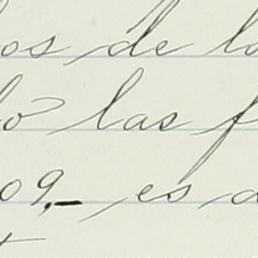 os de lo
o las f
09,- es d